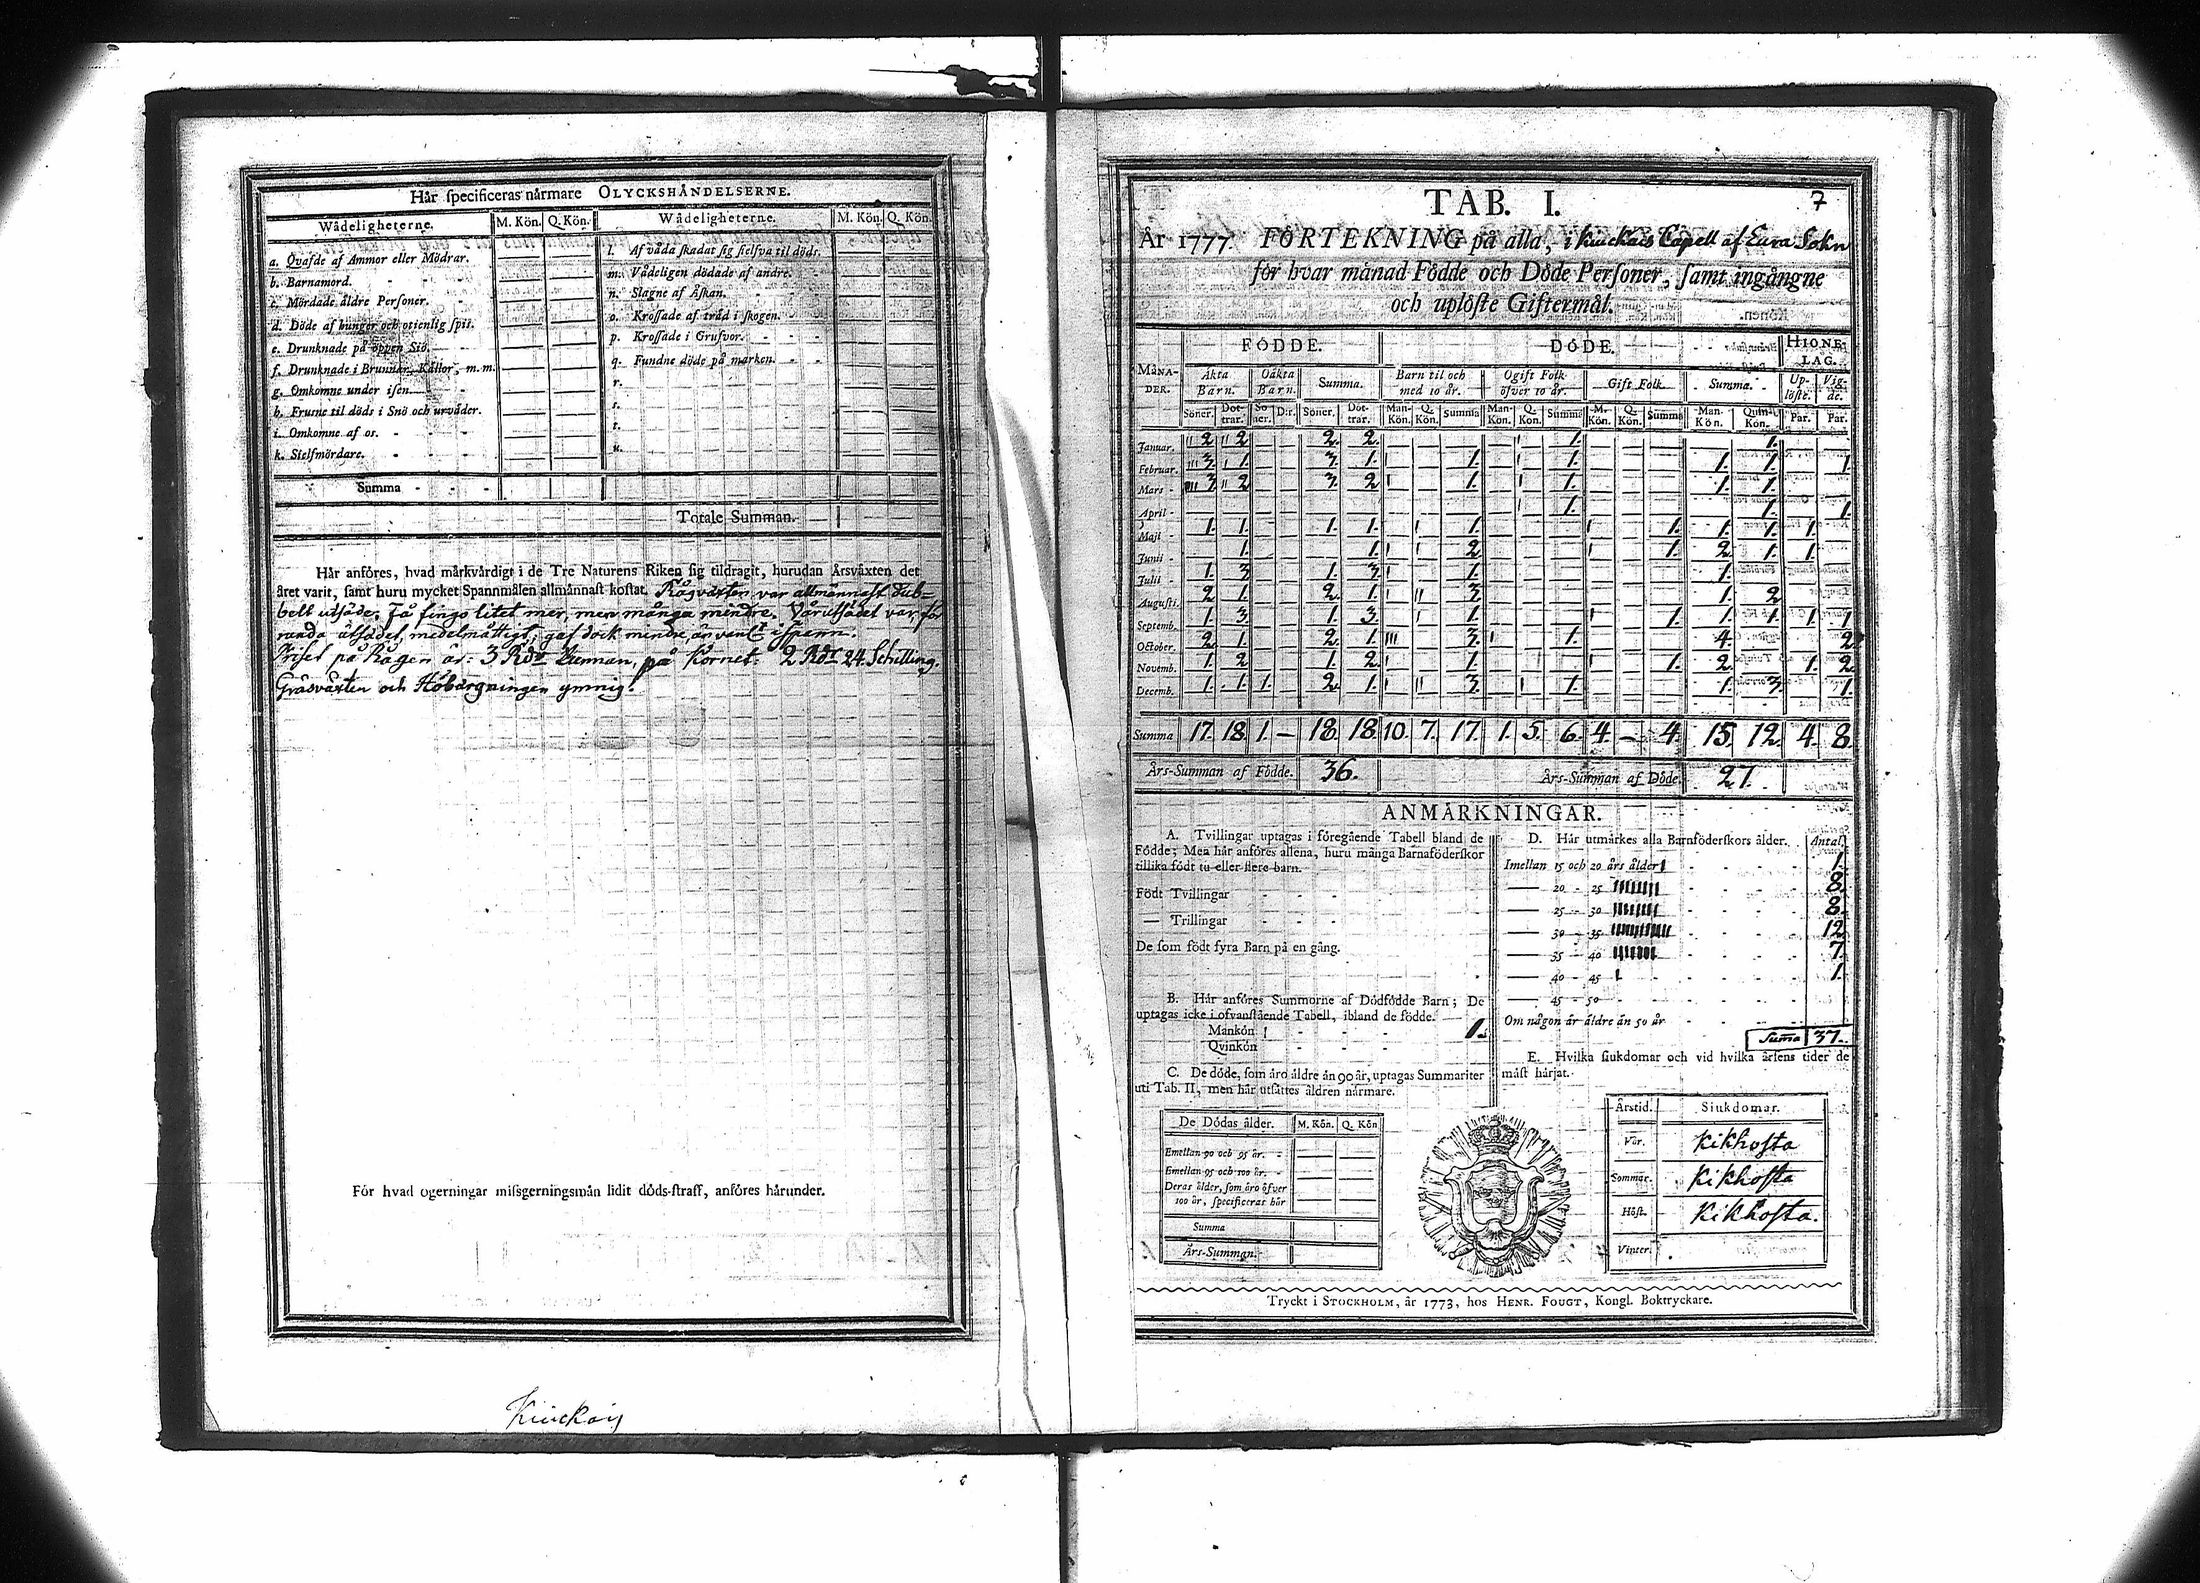 Hår specificeras nårmare OLYCKSHÅNDELSERNE.
Wådeligheterne. M. Kön. Q. Kön. Wådeligheterne. M. Kön. Q. Kön.
a. Qvafde af Ammor eller Mödrar.
b. Barnamord.
c. Mördade åldre Personer.
d. Döde af hunger och otienlig spis.
e. Drunknade på öppen Siö.
f. Drunknade i Brunnar, Kållor, m. m.
g. Omkomne under isen.
h. Frusne til döds i Snö och urvåder.
i. Omkomne af os.
k. Sielfmördare.
l. Af våda skadat sig sielfva til döds.
m. Vådeligen dödade af andre.
n. Slagne af Åskan.
o. Krossade af tråd i skogen.
p. Krossade i Grufvor.
q. Fundne döde på marken.
r.
s.
t.
u.
Summa
Totale Summan.
Hår anföres, hvad mårkvårdigt i de Tre Naturens Riken sig tildragit, hurudan Årsvåxten det
året varit, samt huru mycket Spannmålen allmånnast kostat. Rågväxten var allmännast dub=
belt utsäde; Få fingo litet mer, men många mindre. Vårutsädet var, för
runda utsädet, medelmåttigt, gaf dock mindre än vanl:t i spann.
Priset på Rågen är: 3 Rdr Tunnan, på Kornet: 2 Rdr 24. Schilling.
Gräsväxten och Höbärgningen ymnig.
För hvad ogerningar missgerningsmån lidit döds-straff, anföres hårunder.
TAB. I. 7
År 1777. FÖRTEKNING på alla, i Kiuckais Capell af Eura Sokn
för hvar månad Födde och Döde Personer, samt ingångne
och uplöste Giftermål.
MÅNADER. FÖDDE. DÖDE. HIONELAG.
Åkta Barn. Oåkta Barn. Summa. Barn til och med 10 år. Ogift Folk öfver 10 år. Gift Folk. Summa. Uplöste. Vigde.
Söner. Döttrar. Söner. Dir. Söner. Döttrar. Man-Kön. Q. Kön. Summa Man-Kön. Q. Kön. Summa M. Kön. Q. Kön. Summa Man-Kön. Quin-Kön. Par. Par.
Januar. 2 2 2. 2. 1. 1.
Februar. 3. 1. 3. 1. 1. 1. 1. 1. 1.
Mars 3 2 3. 2 1. 1. 1. 1.
April 1. 1. 1.
Maji 1. 1. 1. 1. 1. 1. 1. 1. 1.
Junii 1. 1. 2 1. 2 1. 1.
Julii 1. 3 1. 3. 1. 1.
Augusti. 2 1. 2. 1. 3. 1. 2
Septemb. 1. 3. 1. 3. 1. 1. 1. 1. 1. 1
October. 2. 1. 2. 1. 3. 1. 4. 2
Novemb. 1. 2 1. 2. 1. 1. 2. 1. 2
Decemb. 1. 1. 1. 2. 1. 3. 1. 1. 3. 1.
Summa 17. 18. 1. – 18. 18. 10. 7. 17. 1. 5. 6. 4. – 4. 15. 12. 4. 8.
Års-Summan af Födde. 36. Års-Summan af Döde. 27.
ANMÅRKNINGAR.
A. Tvillingar uptagas i föregående Tabell bland de
Födde; Men hår anföres allena, huru många Barnaföderskor
tillika födt tu eller flere barn.
Födt Tvillingar
— Trillingar
De som födt fyra Barn på en gång.
B. Hår anföres Summorne af Dödfödde Barn; De
uptagas icke i ofvanstående Tabell, ibland de födde.
Mankön 1.
Qvinkön
C. De döde, som åro åldre ån 90 år, uptagas Summariter
uti Tab. II, men hår utsåttes åldren nårmare.
De Dödas ålder. M. Kön. Q. Kön
Emellan 90 och 95 år.
Emellan 95 och 100 år.
Deras ålder, som åro öfver
100 år, specificeras hår
Summa
Års-Summan.
D. Hår utmårkes alla Barnföderskors ålder. Antal.
Imellan 15 och 20 års ålder 1.
— 20 - 25 8.
— 25 - 30 8.
— 30 - 35 12
— 35 - 40 7.
— 40 - 45 1.
— 45 - 50
Om någon år åldre ån 50 år
Suma 37.
E. Hvilka siukdomar och vid hvilka årsens tider de
måst hårjat.
Årstid. Siukdomar.
Vår. Kikhosta
Sommar. Kikhosta
Höst. Kikhosta.
Vinter.
Tryckt i STOCKHOLM, år 1773, hos HENR. FOUGT, Kongl. Boktryckare.
Kiuckais